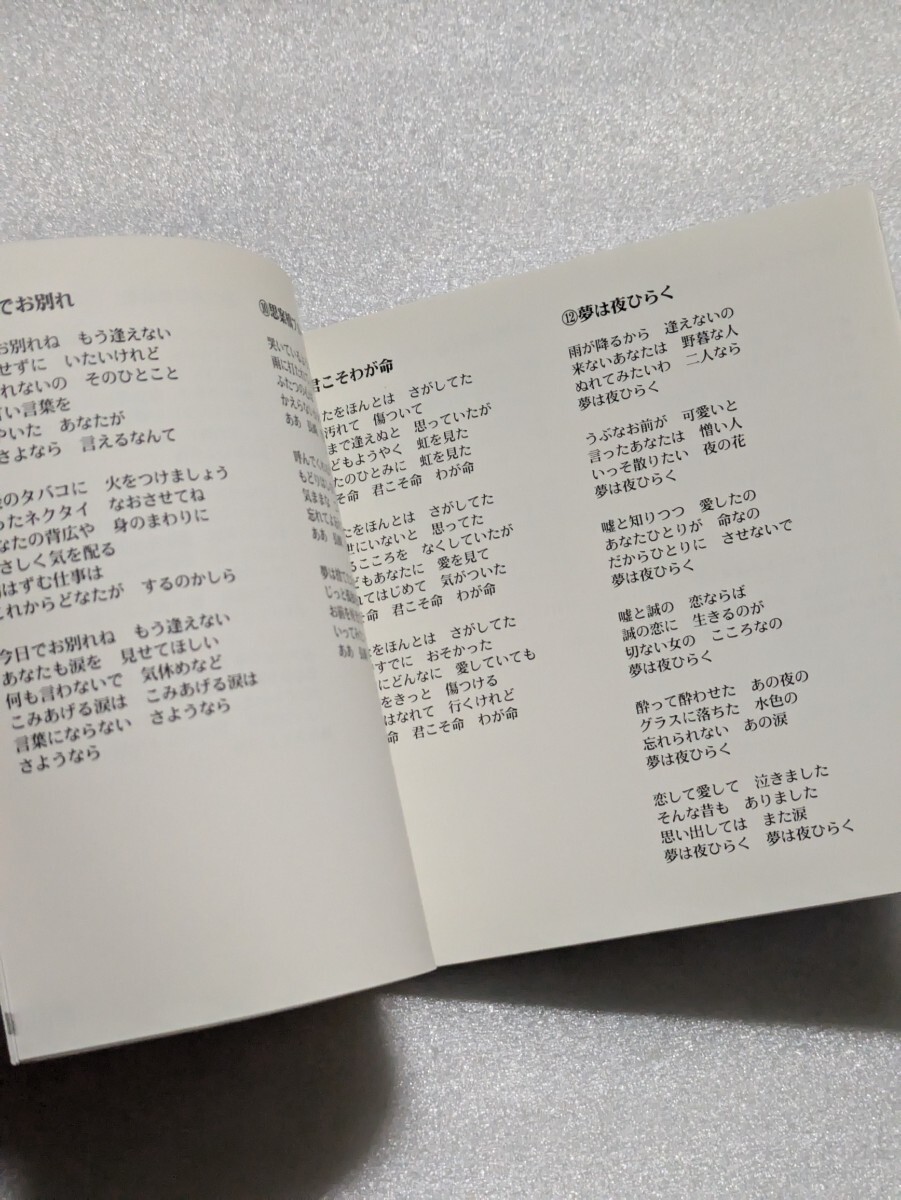 でお別れ
お別れね　もう逢えない
せずに　いたいけれど
れないの　そのひとこと
い言葉を
やいた　あなたが
さよなら　言えるなんて
のタバコに　火をつけましょう
ったネクタイ　なおさせてね
なたの背広や　身のまわりに
さしく気を配る
はずむ仕事は
これからどなたが　するのかしら
今日でお別れね　もう逢えない
あなたも涙を　見せてほしい
何も言わないで　気休めなど
こみあげる涙は　こみあげる涙は
言葉にならない　さようなら
さようなら
哭いている
雨に打たれ
ふたつの
かえらない
ああ
呼んで
もどりは
気ままな
忘れて
ああ
夢は捨て
じっと
お前を
いって
ああ
君こそわが命
たをほんとは　さがしてた
汚れて　傷ついて
まで逢えぬと　思っていたが
どもようやく　虹を見た
たのひとみに　虹を見た
そ命　君こそ命　わが命
たをほんとは　さがしてた
世にいないと　思ってた
るこころを　なくしていたが
どもあなたに　愛を見て
れてはじめて　気がついた
命　君こそ命　わが命
をほんとは　さがしてた
すでに　おそかった
にどんなに　愛していても
をきっと　傷つける
はなれて　行くけれど
命　君こそ命　わが命
⑫夢は夜ひらく
雨が降るから　逢えないの
来ないあなたは　野暮な人
ぬれてみたいわ　二人なら
夢は夜ひらく
うぶなお前が　可愛いと
言ったあなたは　憎い人
いっそ散りたい　夜の花
夢は夜ひらく
嘘と知りつつ　愛したの
あなたひとりが　命なの
だからひとりに　させないで
夢は夜ひらく
嘘と誠の　恋ならば
誠の恋に　生きるのが
切ない女の　こころなの
夢は夜ひらく
酔って酔わせた　あの夜の
グラスに落ちた　水色の
忘れられない　あの涙
夢は夜ひらく
恋して愛して　泣きました
そんな昔も　ありました
思い出しては　また涙
夢は夜ひらく　夢は夜ひらく